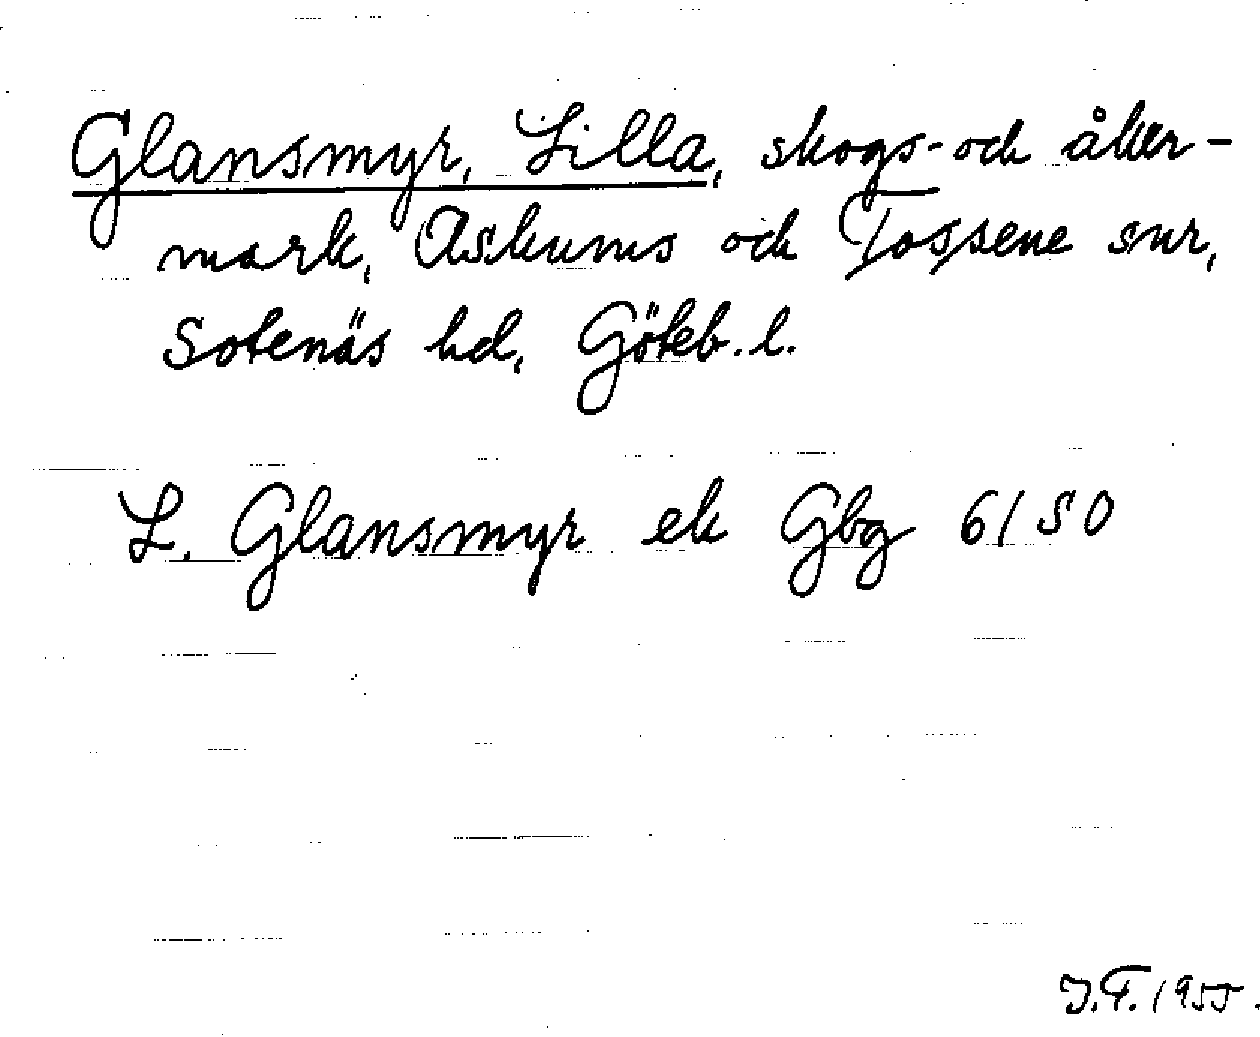 Glansmyr, Lilla, skogs- och åker-
mark, Askums och Tossene snr,
Sotenäs hd, Göteb. l.
L. Glansmyr ek Gbg 6/SO
J.F. 1955.